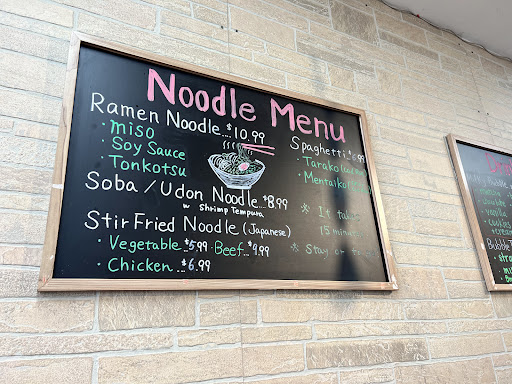 Noodle Menu
Ramen Noodle...$10.99
· miso
· Soy Sauce
· Tonkotsu
Soba / Udon Noodle...$8.99
w shrimp Tempura
Stir Fried Noodle (Japanese)
· Vegetable..$5.99 · Beef..$9.99
· Chicken..$6.99
Spaghetti
· Tarako
· Mentaiko
* It
15 min
* Stay or
vanilla
cookies
Bubble